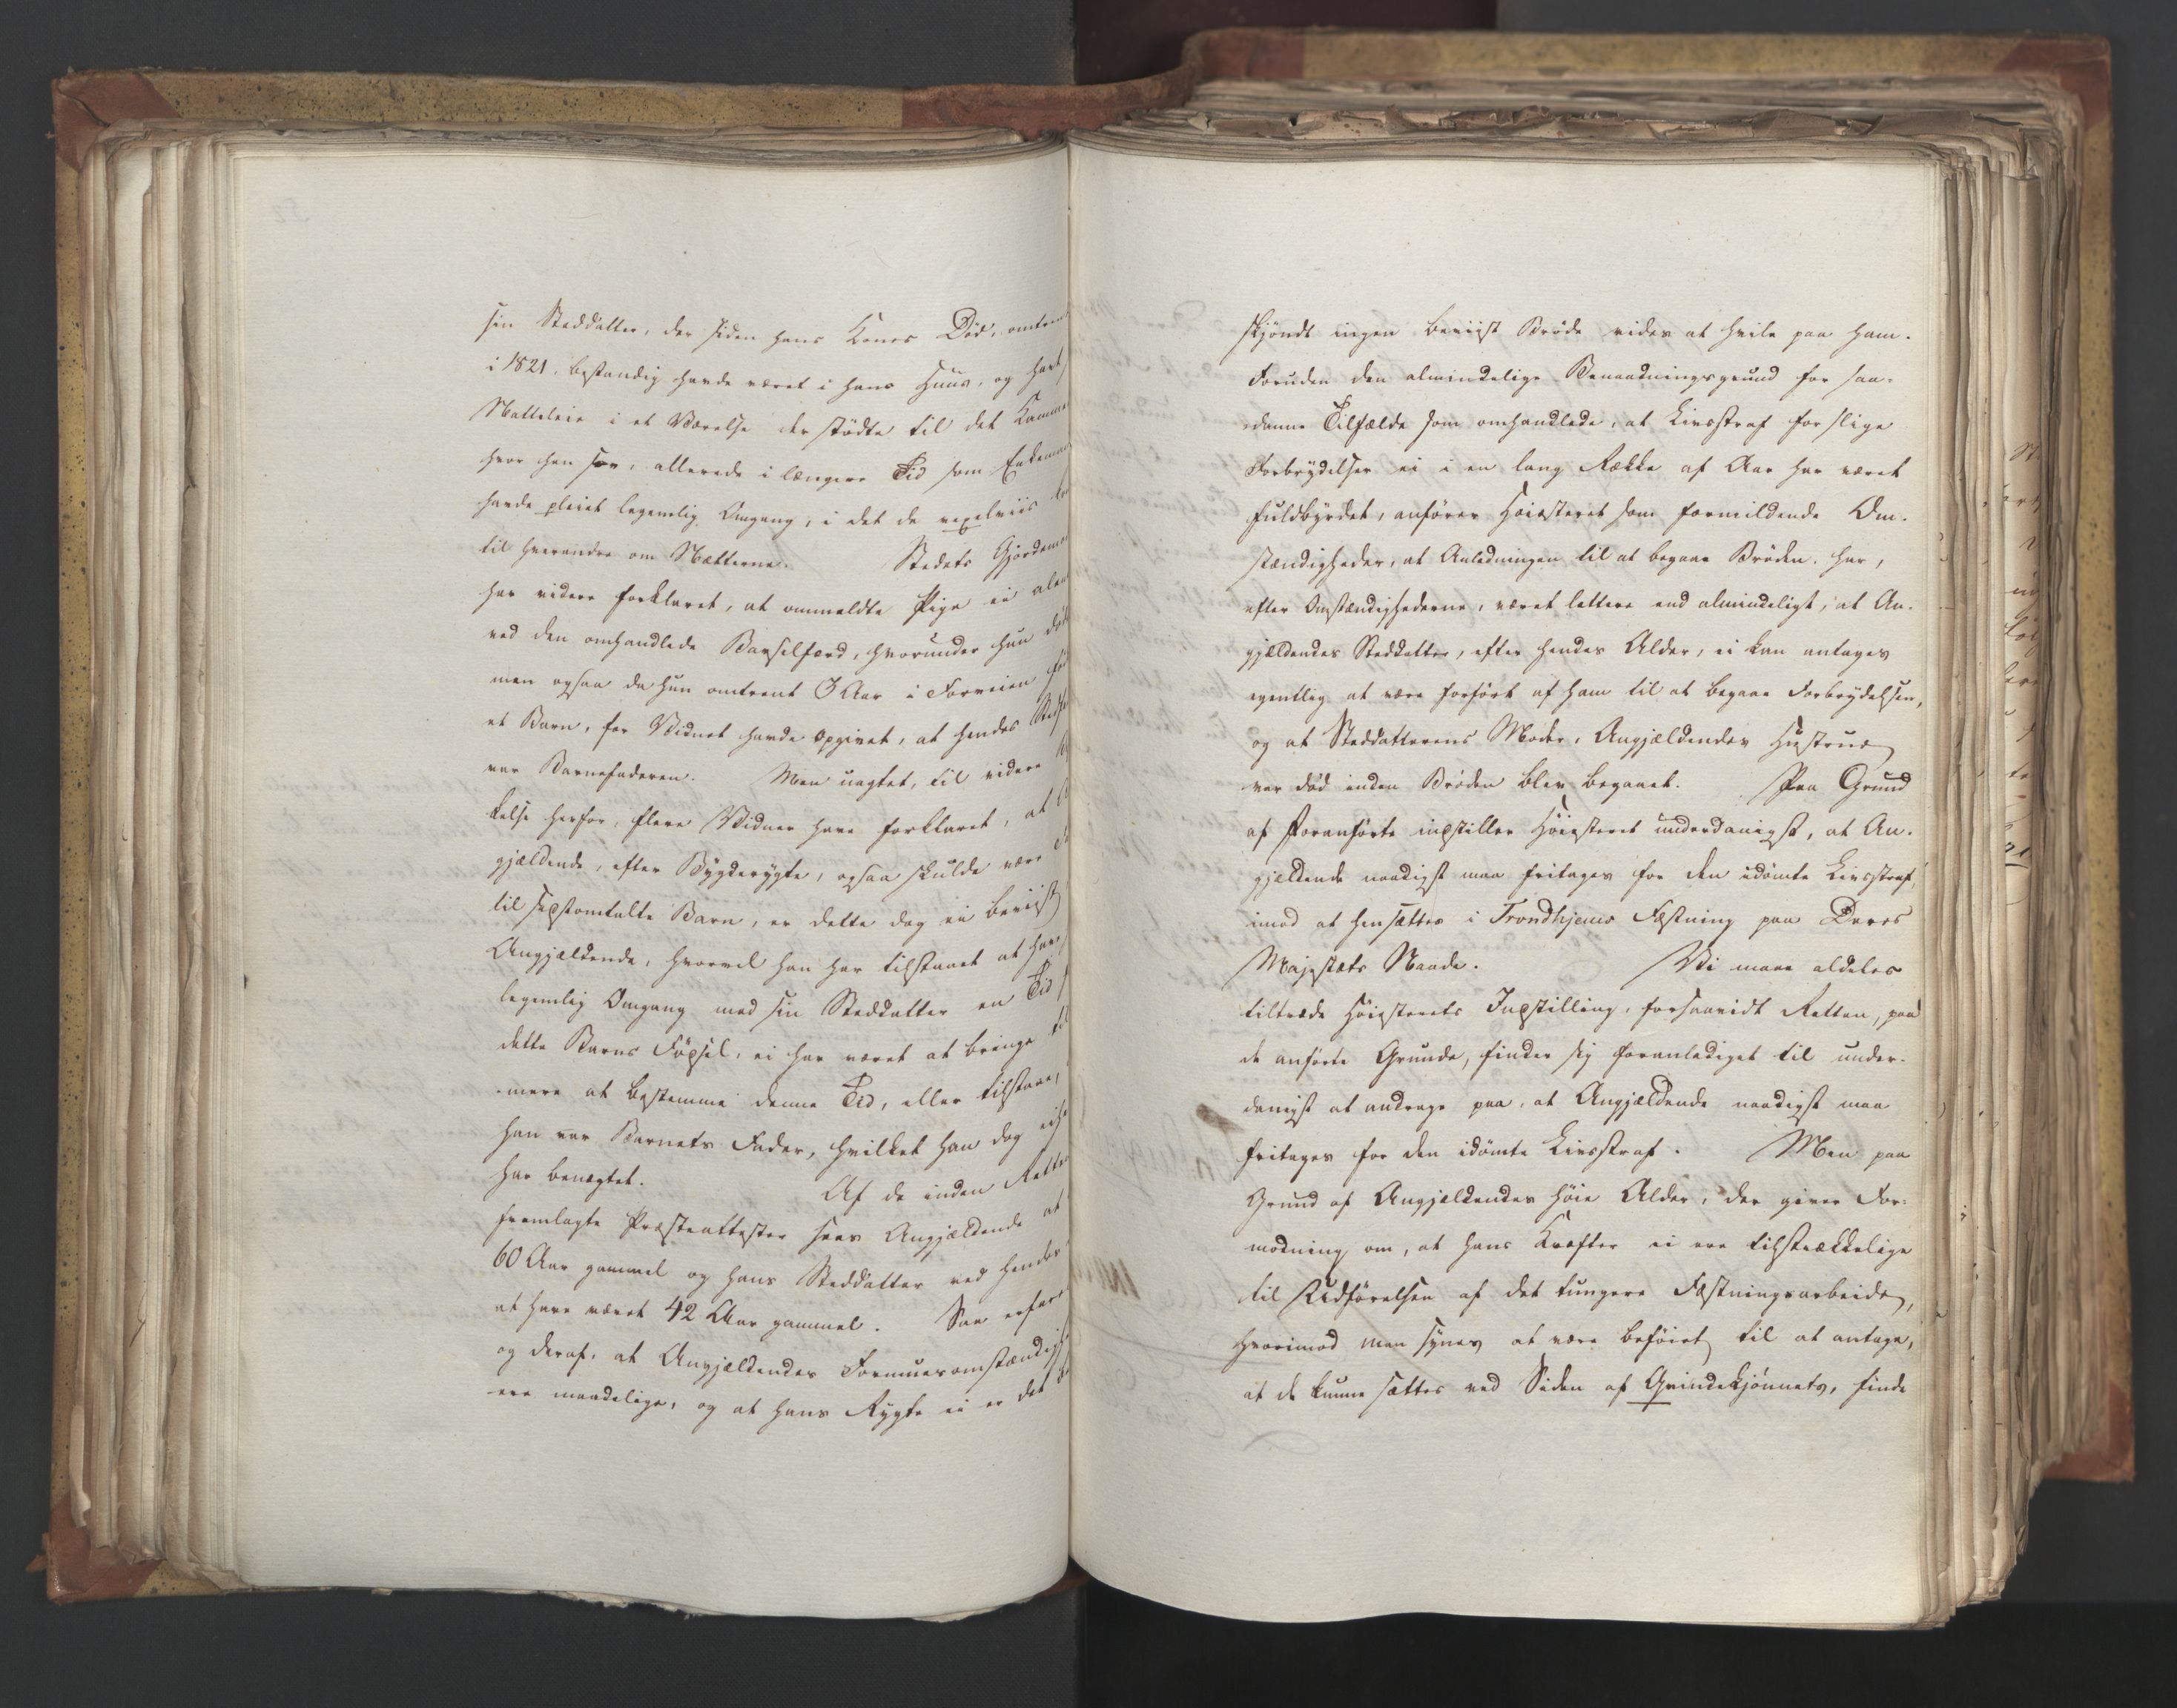 sin Steddatter, der siden hans Kones Död, omtrent
i 1821, bestandig havde været i hans Huus, og havt
Natteleie i et Værelse der stödte til det Kammer
hvor han sov, allerede i længere Tid som Enkemand
havde pleiet legemlig Omgang, i det de vexelviis
til hverandre om Nætterne. Stedets Gjordemo
har videre forklaret, at ommeldte Pige ei alene
ved den omhandlede Barselfærd, hvorunder hun döde
men ogsaa da hun omtrent 3 Aar i Forveien
et Barn, for Vidnet havde opgivet, at hendes Stedfa
var Barnefaderen. Men uagtet, til videre
kelse herfor, flere Vidner have forklaret, at
gjældende, efter Bygderygte, ogsaa skulde være
til sidstomtalte Barn, er dette dog ei beviist
Angjældende, hvorvel han har tilstaaet at have
legemlig Omgang med sin Steddatter en Tid
dette Barns Födsel, ei har været at bringe til
mere at bestemme denne Tid, eller tilstaae,
han var Barnets Fader, hvilket han dog
har benægtet. Af de inden Retten
fremlagte Præsteattester sees Angjældende at
60 Aar gammel og hans Steddatter ved hendes
at have været 42 Aar gammel. Saa erfares
og deraf, at Angjældendes Formuesomstændigh
ere maadelige, og at hans Rygte ei er det
skjöndt ingen beviist Bröde vides at hvile paa ham.
Foruden den almindelige Benaadningsgrund for saa-
danne Tilfælde som omhandlede, at Livsstraf for slige
Forbrydelser ei i en lang Række af Aar har været
fuldbyrdet, anförer Höiesteret som formildende Om-
stændigheder, at Anledningen til at begaae Bröden, har,
efter Omstændighederne, været lettere end almindeligt, at An-
gjældendes Steddatter, efter hendes Alder, ei kan antages
egentlig at være forfört af ham til at begaae Forbrydelsen,
og at Steddatterens Moder, Angjældendes Hustrue
var död inden Bröden blev begaaet. Paa Grund
af Foranförte indstiller Höiesteret underdanigst, at An-
gjældende naadigst maa fritages for den idömte Livsstraf,
imod at hensættes i Trondhjems Fæstning paa Deres
Majestæts Naade. Vi maae aldeles
tiltræde Höiesterets Indstilling, forsaavidt Retten, paa
de anförte Grunde, finder sig foranlediget til under-
danigst at andrage paa, at Angjældende naadigst maa
fritages for den idömte Livsstraf. Men paa
Grund af Angjældendes höie Alder, der giver For-
modning om, at hans Kræfter ei ere tilstrækkelige
til Udförelsen af det tungere Fæstningsarbeide,
hvorimod man synes at være beföiet til at antage,
at de kunne sættes ved Siden af Qvindekjönnets, finde